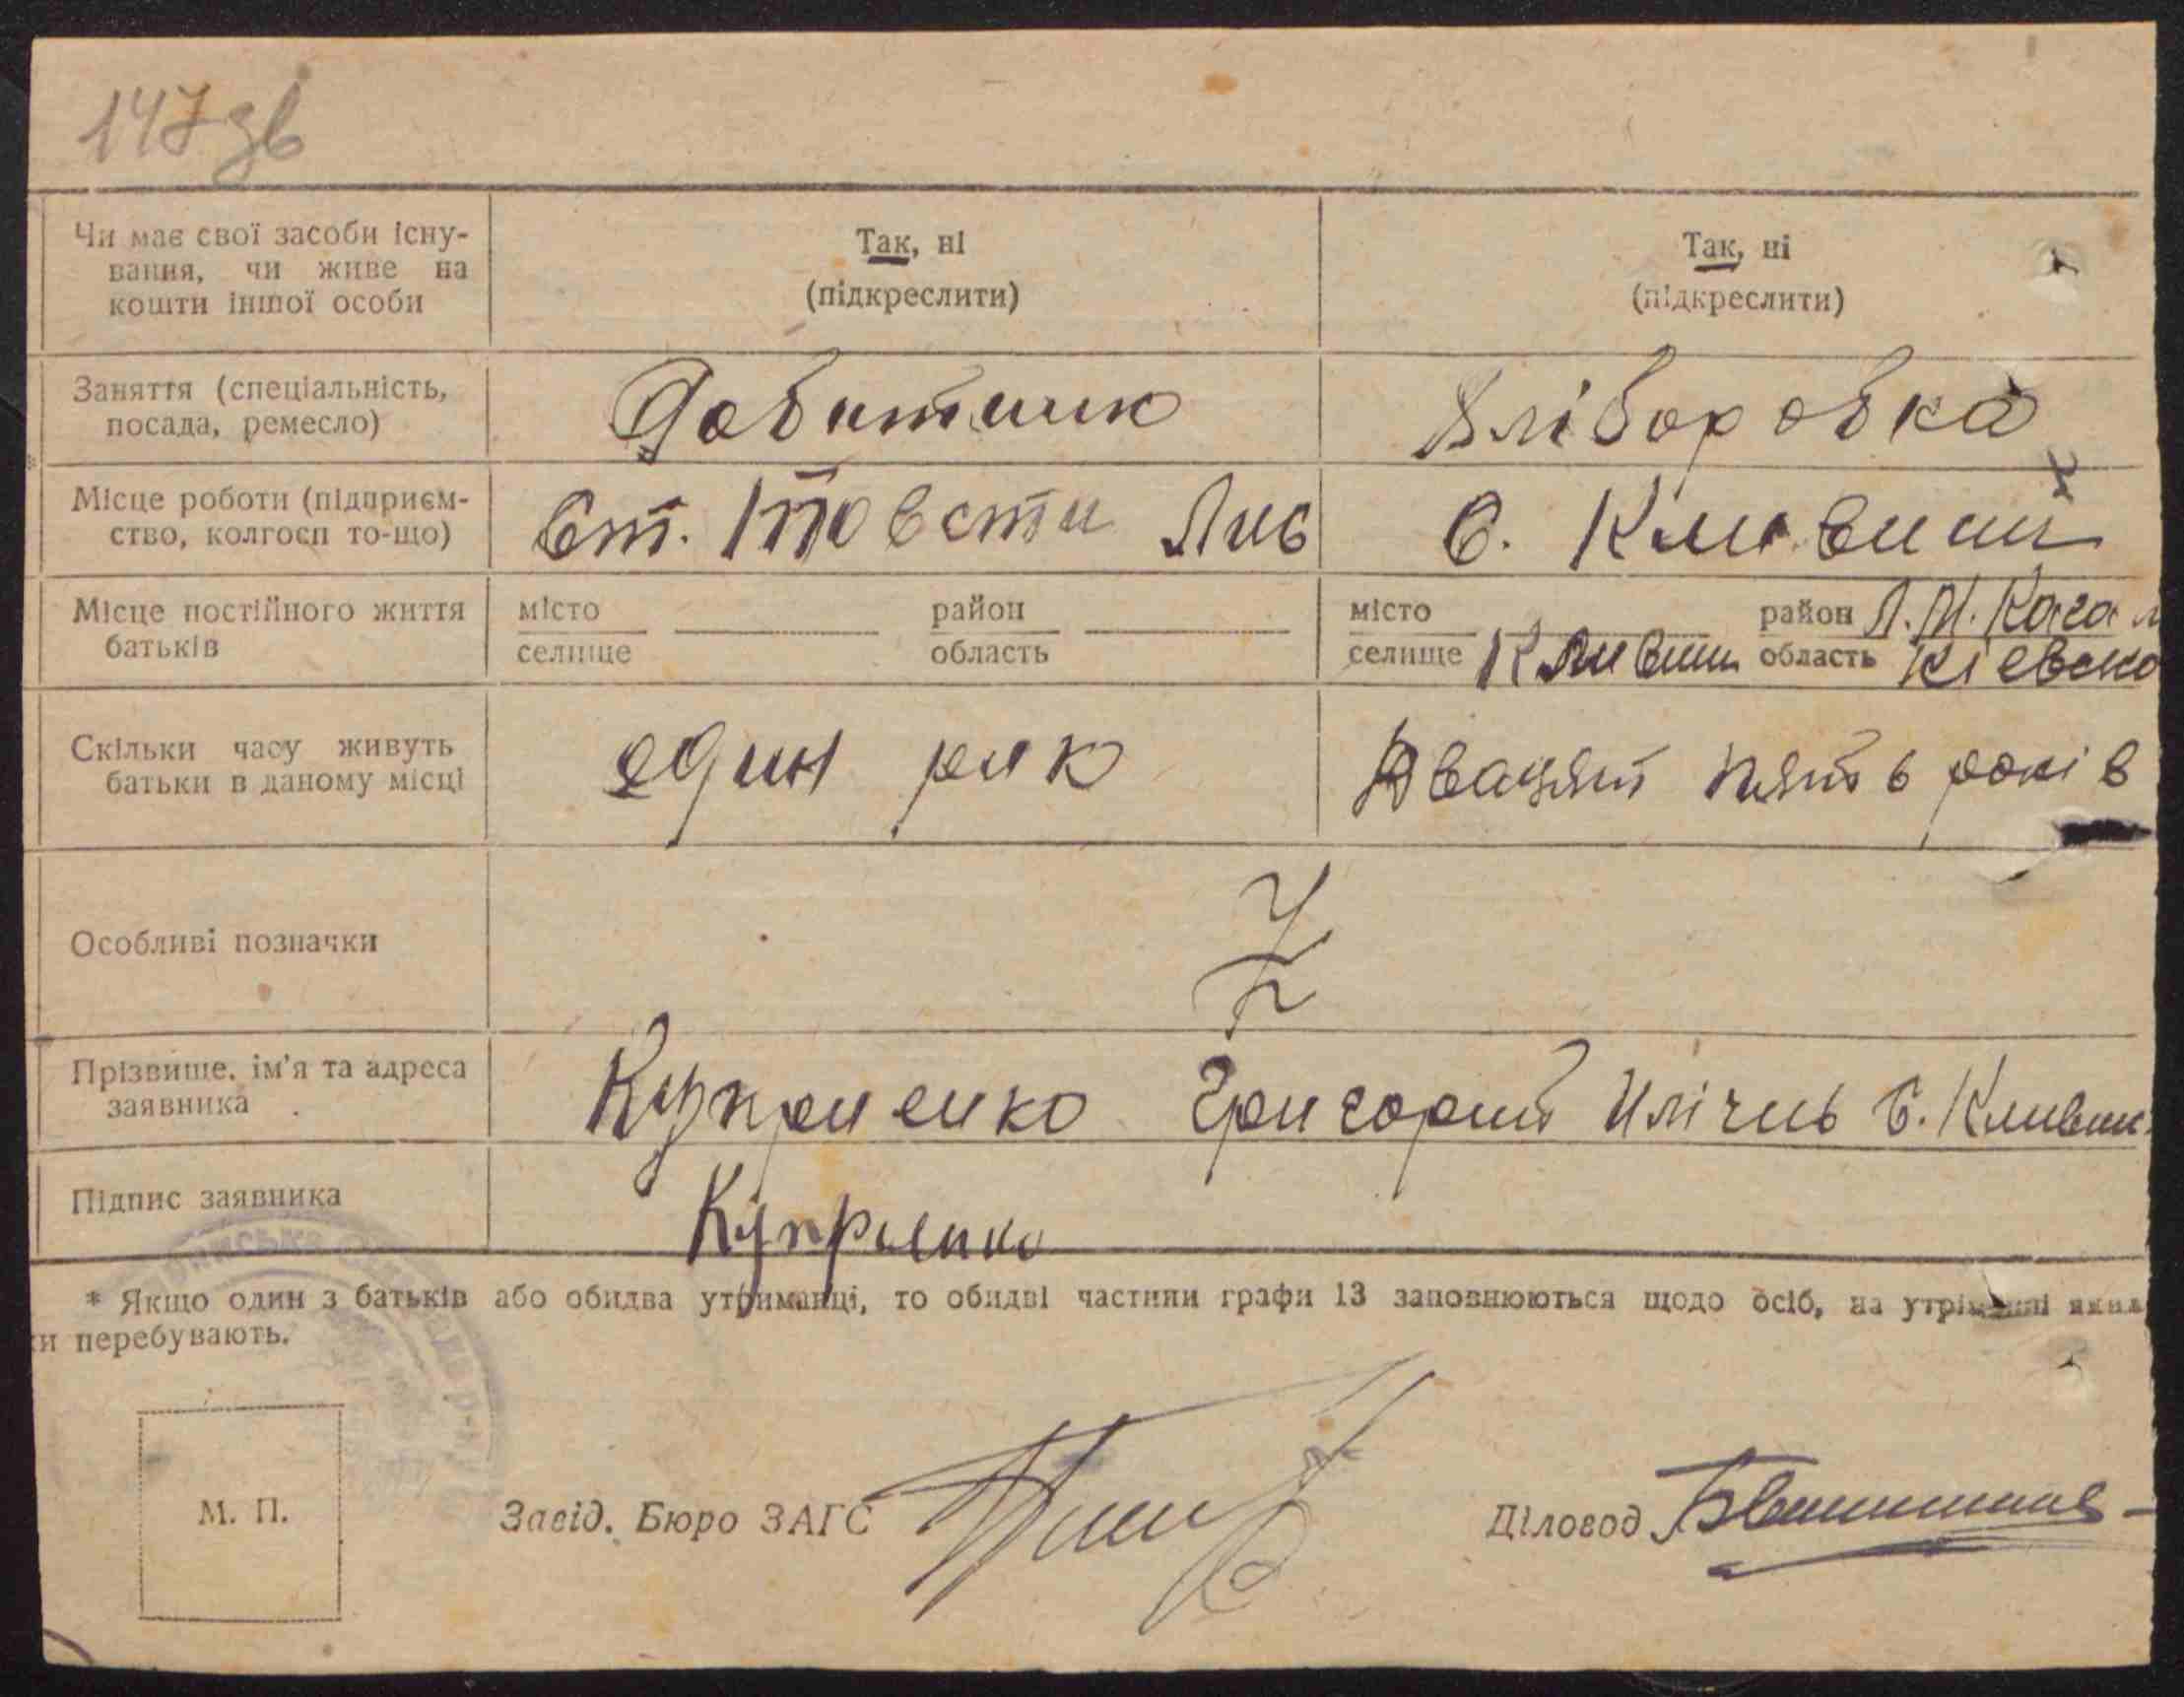 147 зв
Чи має свої засоби існу-
вання, чи живе на
кошти іншої особи
Так, ні
(підкреслити)
Так, ні
(підкреслити)
Заняття (спеціальність,
посада, ремесло)
Хліборобка
Місце роботи (підприєм-
ство, колгосп то-що)
Ст.
С. Кливини
Місце постійного життя
батьків
місто
селище
район
область
місто
селище Кливини
район Л. М. Каган
область Кіевско
Скільки часу живуть
батьки в даному місці
один рик
Двацят пять років
Особливі позначки
Прізвище, ім'я та адреса
заявника
Куприенко Григорий Илічь С. Кливин.
Підпис заявника
Куприенко
* Якщо один з батьків або обидва утриманці, то обидві частини графи 13 заповнюються щодо осіб, на утріманні яких
перебувають.
М. П.
Завід. Бюро ЗАГС
Діловод